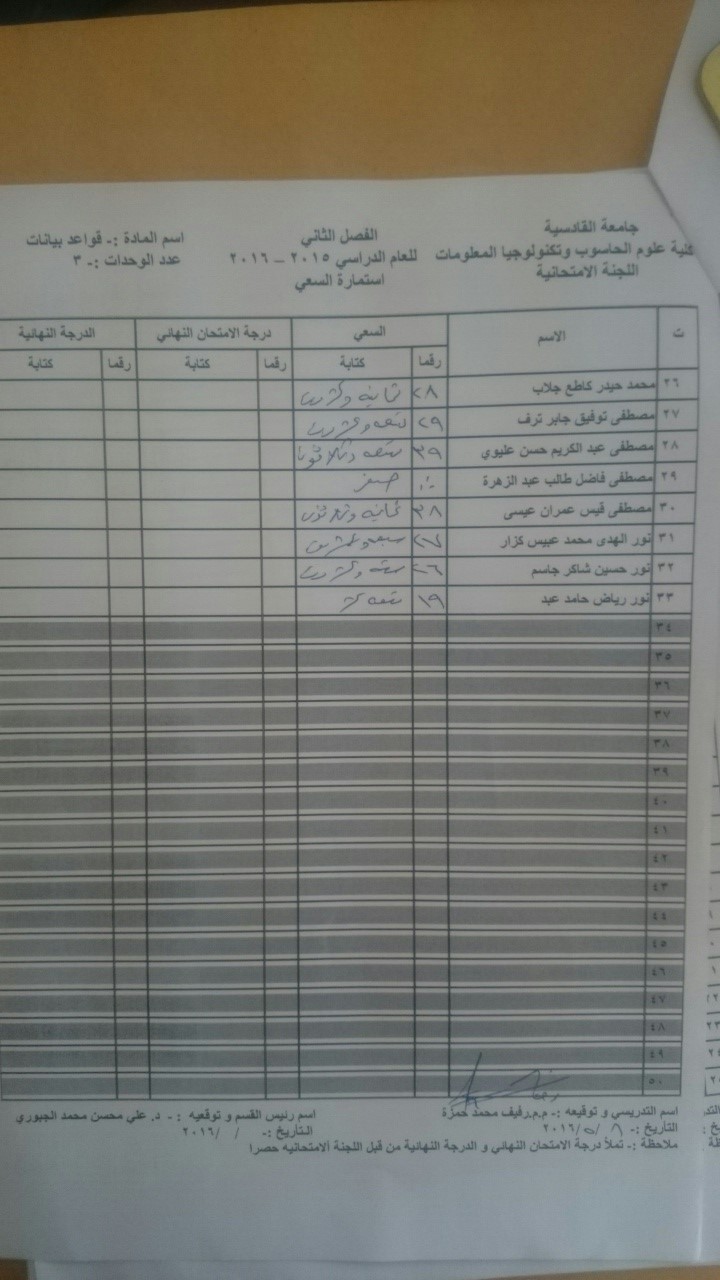 جامعة القادسية
كلية علوم الحاسوب وتكنولوجيا المعلومات
اللجنة الامتحانية
الفصل الثاني
للعام الدراسي ٢٠١٥ – ٢٠١٦
استمارة السعي
اسم المادة :- قواعد بيانات
عدد الوحدات :- ٣
ت الاسم السعي درجة الامتحان النهائي الدرجة النهائية
رقما كتابة رقما كتابة رقما كتابة
٢٦ محمد حيدر كاطع جلاب ٢٨ ثمانية وعشرون
٢٧ مصطفى توفيق جابر ترف ٢٩ تسعة وعشرون
٢٨ مصطفى عبد الكريم حسن عليوي ٣٩ تسعة وثلاثون
٢٩ مصطفى فاضل طالب عبد الزهرة صفر
٣٠ مصطفى قيس عمران عيسى ٣٨ ثمانية وثلاثون
٣١ نور الهدى محمد عبيس كزار ٢٧ سبعة وعشرون
٣٢ نور حسين شاكر جاسم ٢٦ ستة وعشرون
٣٣ نور رياض حامد عبد ١٩ تسعة عشر
٣٤
٣٥
٣٦
٣٧
٣٨
٣٩
٤٠
٤١
٤٢
٤٣
٤٤
٤٥
٤٦
٤٧
٤٨
٤٩
٥٠
اسم التدريسي و توقيعه :- م.م.رفيف محمد حمزة
التاريخ :- ٨ /٥ /٢٠١٦
اسم رئيس القسم و توقعيه :- د. علي محسن محمد الجبوري
التاريخ :- / /٢٠١٦
ملاحظة :- تملأ درجة الامتحان النهائي و الدرجة النهائية من قبل اللجنة ألامتحانيه حصرا